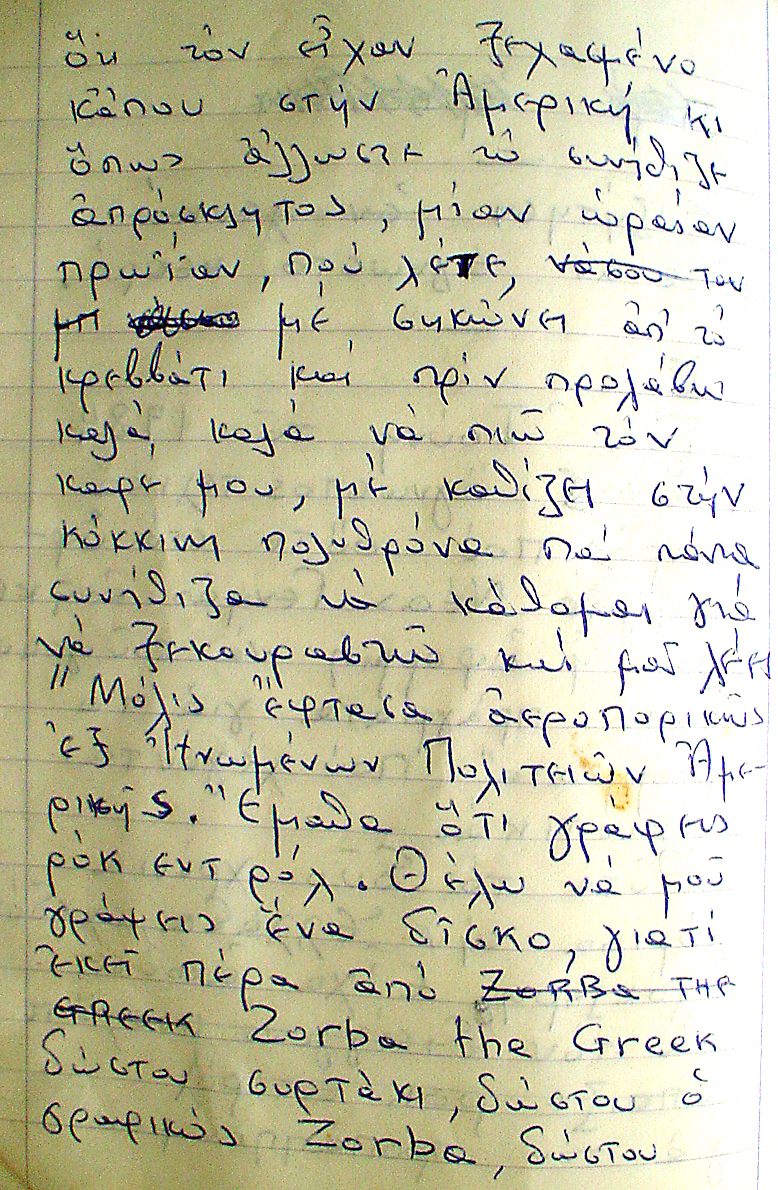 ὅτι τὸν εἶχαν ξεχασμένο
κάπου στὴν Ἀμερικὴ κι
ὅπως ἄλλωστε τὸ συνήθιζε
ἀπρόσκλητος, μίαν ὡραίαν
πρωΐαν, ποὺ λέτε, νάσου τον
μὲ σηκώνει ἀπ' τὸ
κρεββάτι καὶ πρὶν προλάβω
καλά, καλὰ νὰ πιῶ τὸν
καφέ μου, μὲ καθίζει στὴν
κόκκινη πολυθρόνα ποὺ πάντα
συνήθιζα νὰ κάθομαι γιὰ
νὰ ξεκουραστῶ καὶ μοῦ λέει
"Μόλις ἔφτασα ἀεροπορικῶς
ἐξ Ἡνωμένων Πολιτειῶν Ἀμε-
ρικῆς. Ἔμαθα ὅτι γράφεις
ρὸκ εντ ρόλ. Θέλω νὰ μοῦ
γράψεις ἕνα δίσκο, γιατί
ἐκεῖ πέρα ἀπὸ ZORBA THE
GREEK Zorba the Greek
δώστου συρτάκι, δώστου ὁ
γραφικὸς Zorba, δώστου